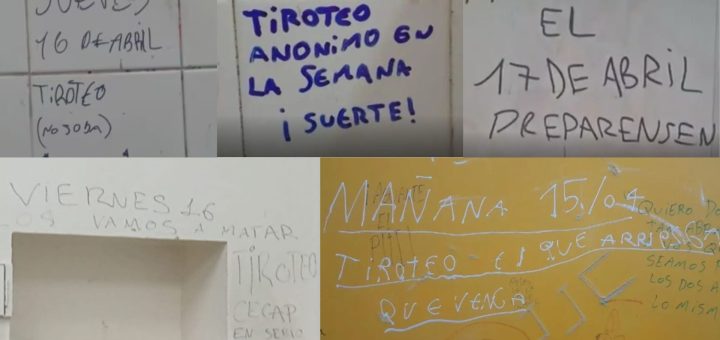 JUEVES
16 DE ABRIL
TIROTEO
(NO JODA)
TIROTEO
ANONIMO EN
LA SEMANA
¡SUERTE!
EL
17 DE ABRIL
PREPARENSEN
VIERNES 16
LOS VAMOS A MATAR
TIROTEO
CECAP
EN SERIO
MAÑANA 15/04
TIROTEO EL QUE ARRIESGA
QUE VENGA
QUIERO
SEAMOS
LOS DOS A
LO MISM